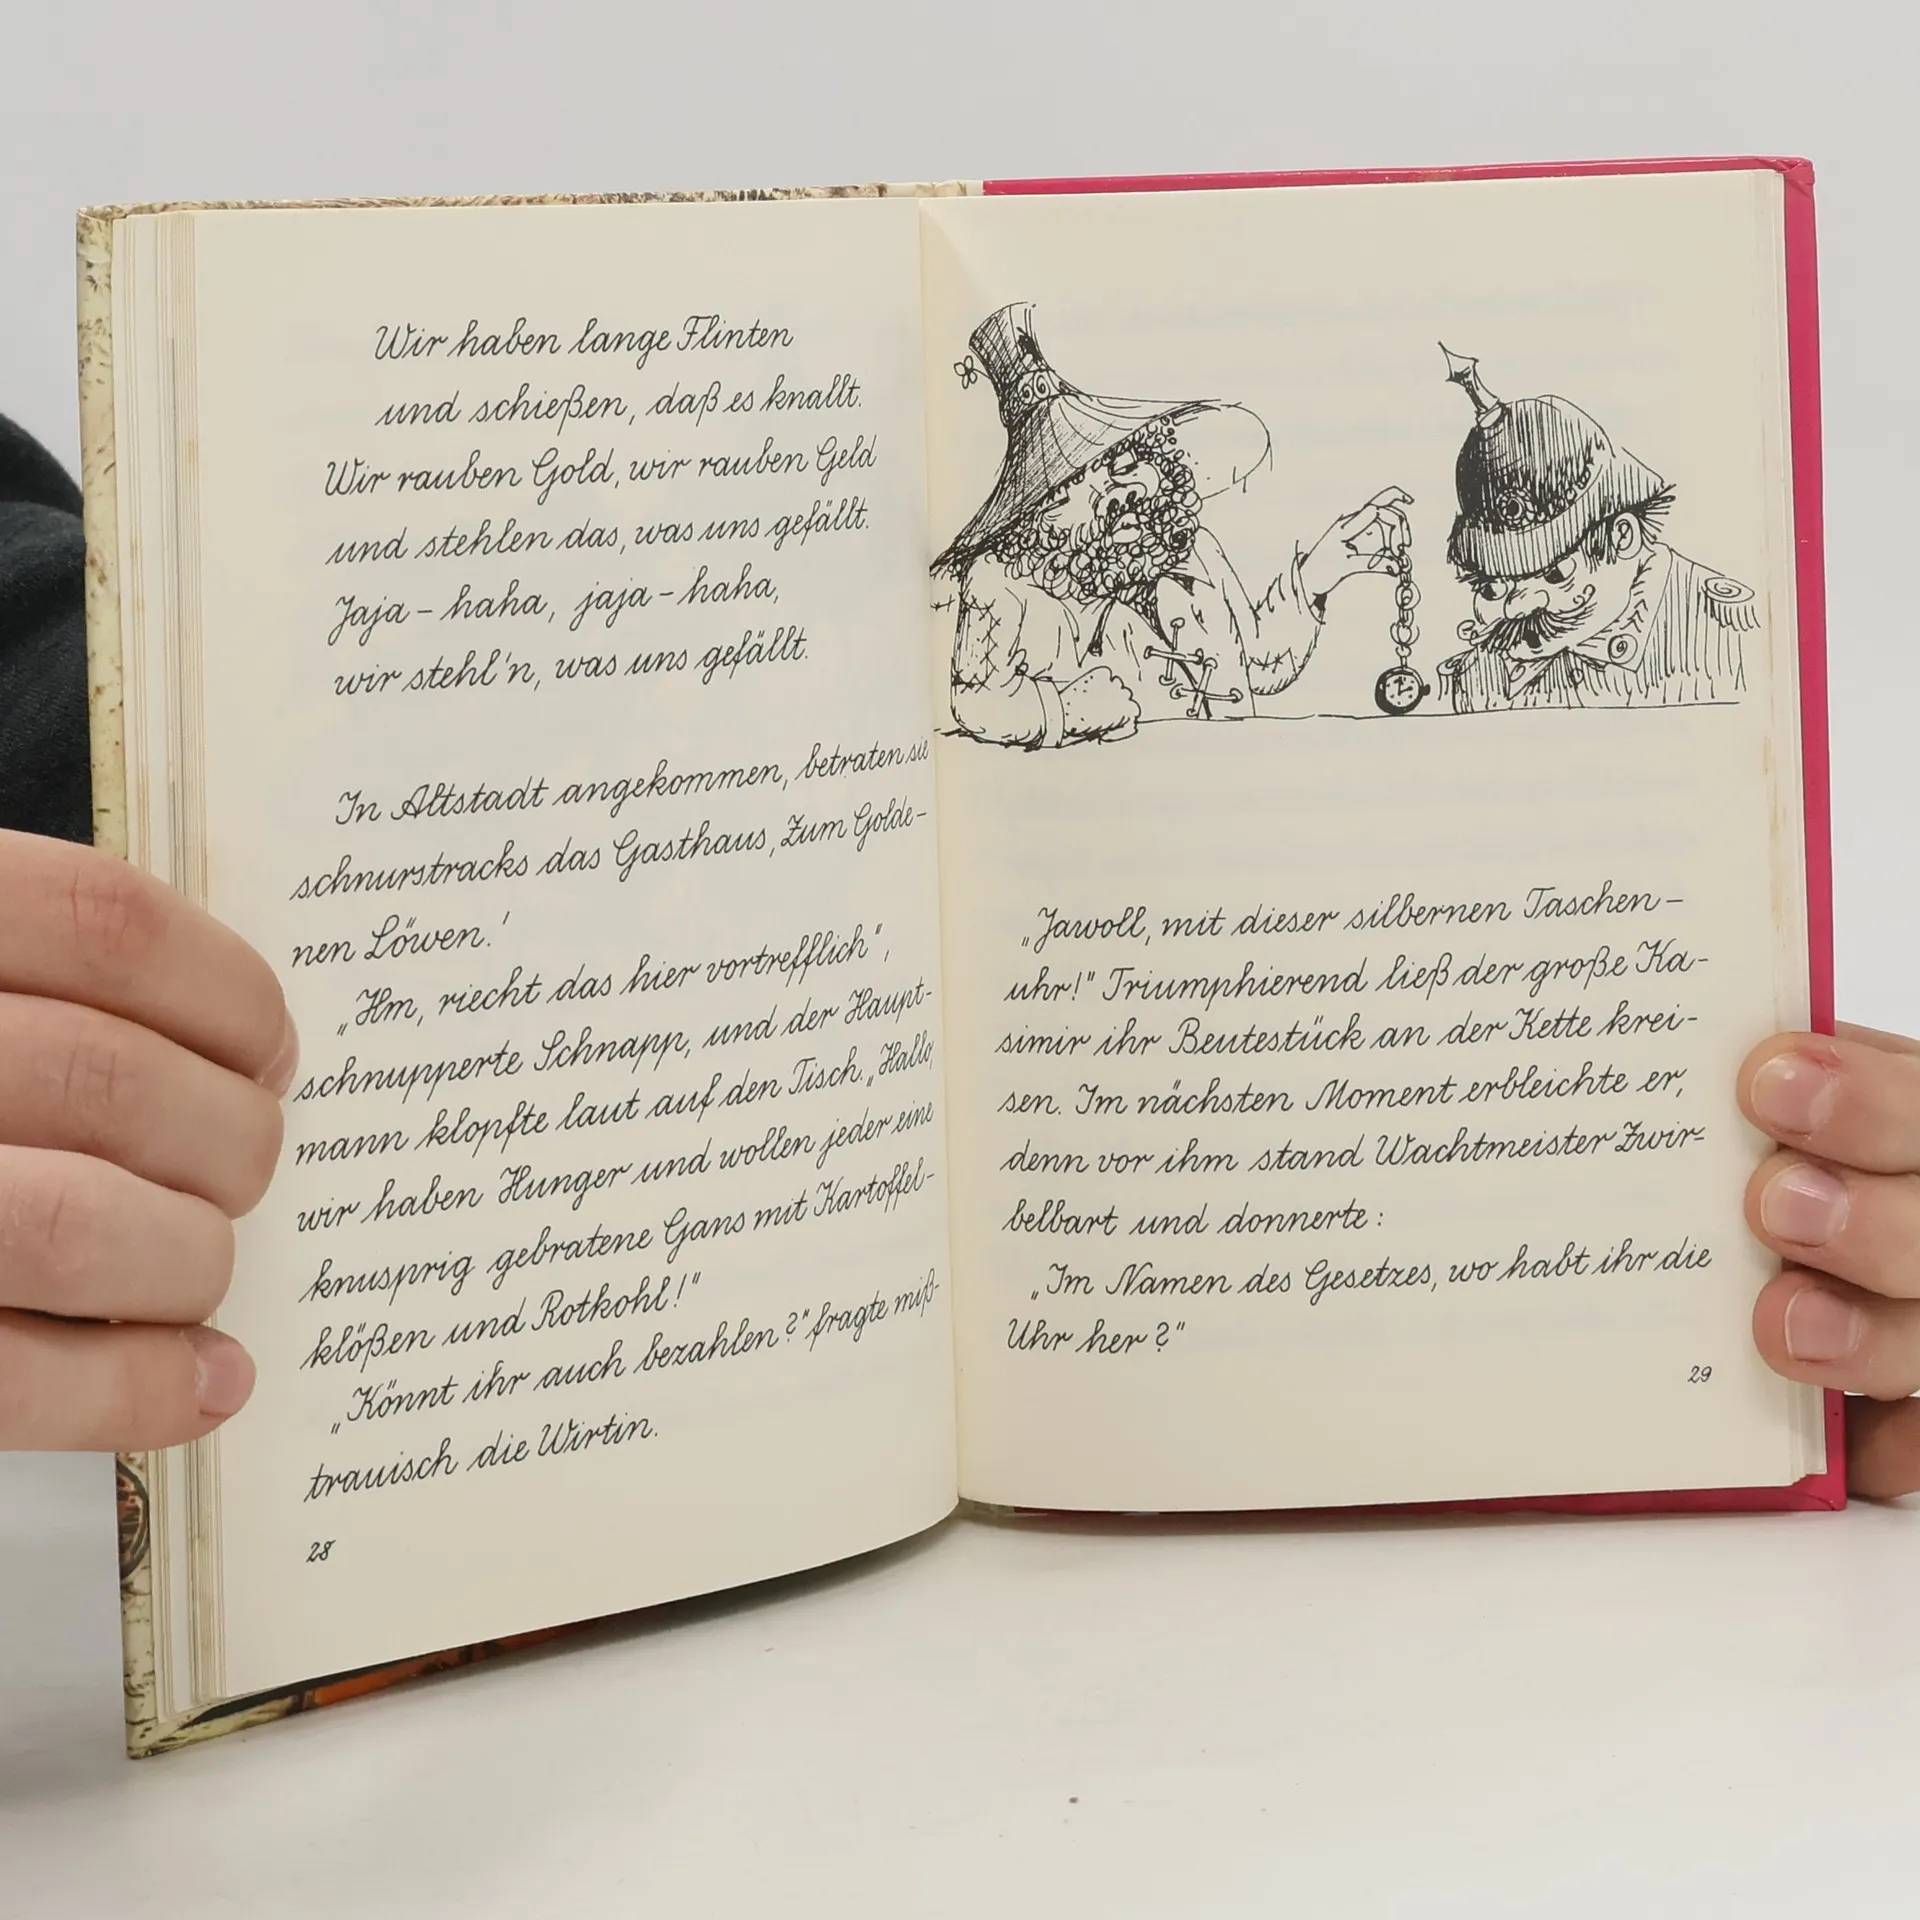 Wir haben lange Flinten
und schießen, daß es knallt.
Wir rauben Gold, wir rauben Geld
und stehlen das, was uns gefällt.
Jaja – haha, jaja – haha,
wir stehl'n, was uns gefällt.
In Altstadt angekommen, betraten sie
schnurstracks das Gasthaus ,Zum Golde-
nen Löwen.'
„Hm, riecht das hier vortrefflich",
schnupperte Schnapp, und der Haupt-
mann klopfte laut auf den Tisch. „Hallo,
wir haben Hunger und wollen jeder eine
knusprig gebratene Gans mit Kartoffel-
klößen und Rotkohl!"
„Könnt ihr auch bezahlen?" fragte miß-
trauisch die Wirtin.
28
„Jawoll, mit dieser silbernen Taschen-
uhr!" Triumphierend ließ der große Ka-
simir ihr Beutestück an der Kette krei-
sen. Im nächsten Moment erbleichte er,
denn vor ihm stand Wachtmeister Zwir-
belbart und donnerte:
„Im Namen des Gesetzes, wo habt ihr die
Uhr her?"
29